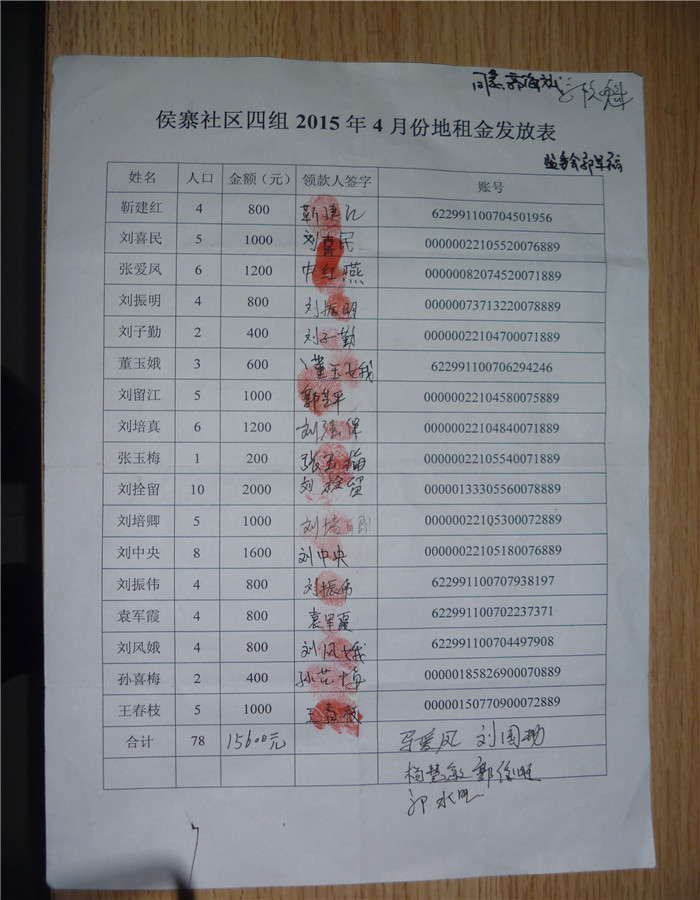 同意 郭海斌
侯寨社区四组 2015 年 4 月份地租金发放表
监委会 郭
姓名 人口 金额（元） 领款人签字 账号
靳建红 4 800 靳建红 622991100704501956
刘喜民 5 1000 刘喜民 00000022105520076889
张爱凤 6 1200 申红燕 00000082074520071889
刘振明 4 800 刘振明 00000073713220078889
刘子勤 2 400 刘子勤 00000022104700071889
董玉娥 3 600 董玉娥 622991100706294246
刘留江 5 1000 郭兰平 00000022104580075889
刘培真 6 1200 刘 保 00000022104840071889
张玉梅 1 200 张玉梅 00000022105540071889
刘拴留 10 2000 刘拴留 00000133305560078889
刘培卿 5 1000 刘培卿 00000022105300072889
刘中央 8 1600 刘中央 00000022105180076889
刘振伟 4 800 刘振伟 622991100707938197
袁军霞 4 800 袁军霞 622991100702237371
刘风娥 4 800 刘风娥 622991100704497908
孙喜梅 2 400 孙 梅 00000185826900070889
王春枝 5 1000 王春枝 00000150770900072889
合计 78 15600元 爱凤 刘国
杨慧敏 郭俊旺
水